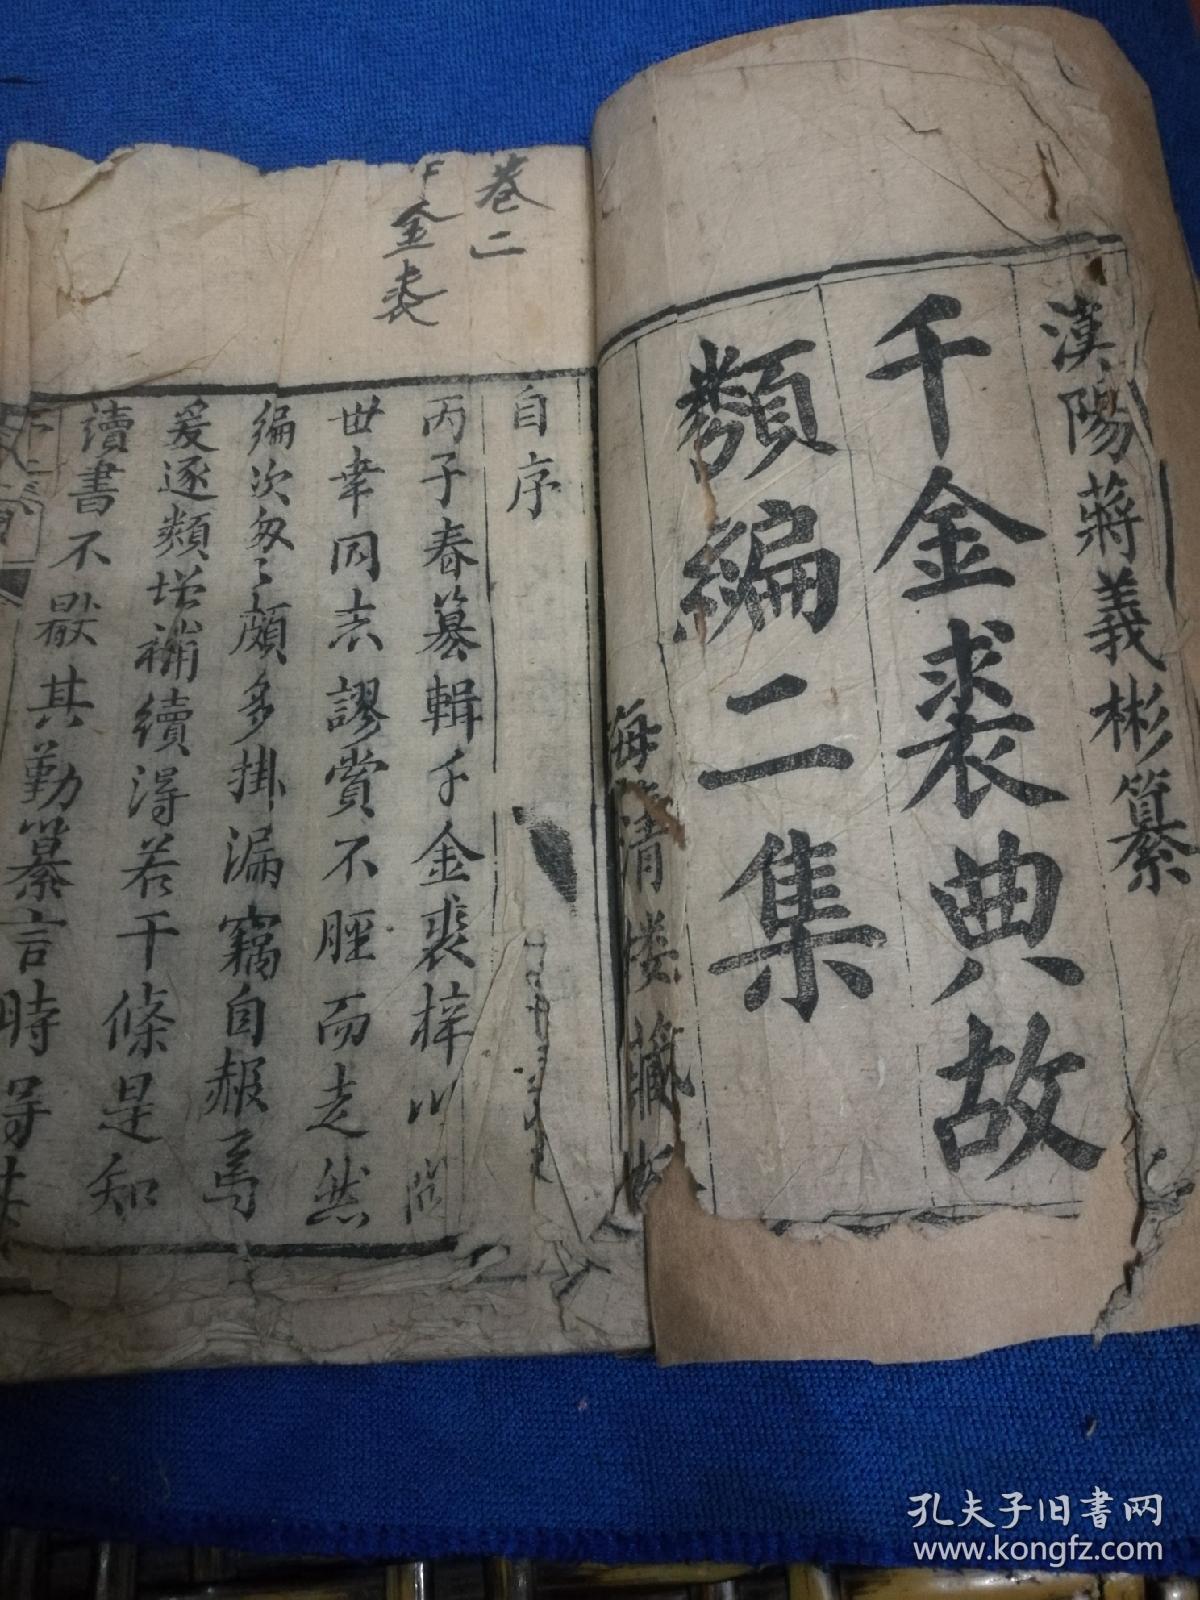 漢陽蔣義彬纂
千金裘典故
類編二集
海清楼藏
卷二
千金裘
自序
丙子春纂輯千金裘梓以問
世幸同志謬賞不脛而走然
編次匆匆頗多掛漏竊自赧焉
爰逐類增補續得若干條是知
讀書不厭其勤纂言時
孔夫子旧书网
www.kongfz.com